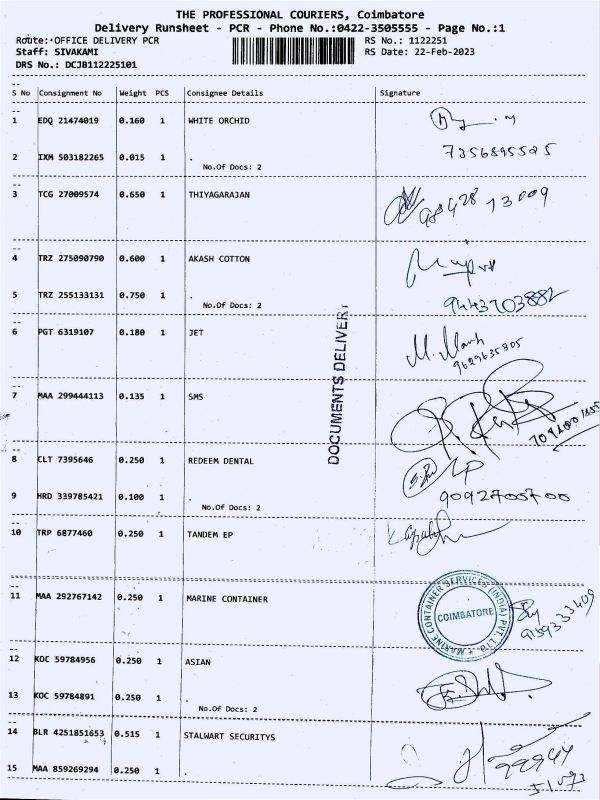 THE PROFESSIONAL COURIERS, Coimbatore
Delivery Runsheet - PCR - Phone No.:0422-3505555 - Page No.:1
Route: OFFICE DELIVERY PCR RS No.: 1122251
Staff: SIVAKAMI RS Date: 22-Feb-2023
DRS No.: DCJB112225101
S No Consignment No Weight PCS Consignee Details Signature
1 EDQ 21474019 0.160 1 WHITE ORCHID
2 IXM 503182265 0.015 1 . 7356895525
No.Of Docs: 2
3 TCG 27009574 0.650 1 THIYAGARAJAN 98428 13009
4 TRZ 275090790 0.600 1 AKASH COTTON
5 TRZ 255133131 0.750 1 . 9443703882
No.Of Docs: 2
DOCUMENTS DELIVERY
6 PGT 6319107 0.180 1 JET 9629635805
7 MAA 299444113 0.135 1 SMS
8 CLT 7395646 0.250 1 REDEEM DENTAL
9 HRD 339785421 0.100 1 . 9092705700
No.Of Docs: 2
10 TRP 6877460 0.250 1 TANDEM EP
11 MAA 292767142 0.250 1 MARINE CONTAINER
MARINE CONTAINER SERVICE (INDIA) PVT. LTD.
COIMBATORE
12 KOC 59784956 0.250 1 ASIAN
13 KOC 59784891 0.250 1 .
No.Of Docs: 2
14 BLR 4251851653 0.515 1 STALWART SECURITYS
15 MAA 859269294 0.250 1 .